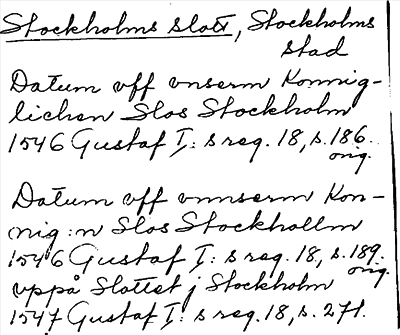 Stockholms slott, Stockholms
stad
Datum vff vnserm Konnig-
lichen Slos Stockholm
1546 Gustaf I:s reg. 18, s. 186.
orig.
Datum vff vnnserm Kon-
nig:n Slos Stockhollm
1546 Gustaf I:s reg. 18, s. 189.
orig.
vppå Slottet j Stockholm
1547 Gustaf I:s reg. 18, s. 271.